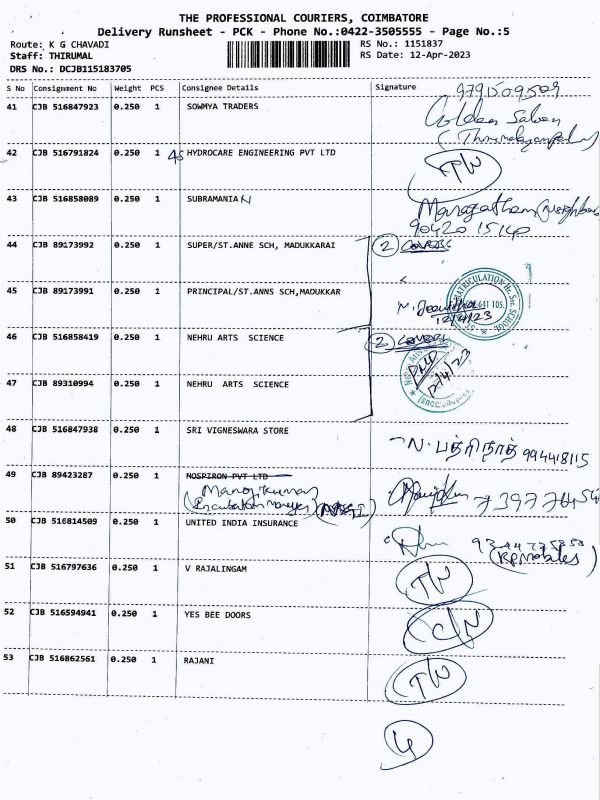 THE PROFESSIONAL COURIERS, COIMBATORE
Delivery Runsheet - PCK - Phone No.:0422-3505555 - Page No.:5
Route: K G CHAVADI
RS No.: 1151837
Staff: THIRUMAL
RS Date: 12-Apr-2023
DRS No.: DCJB115183705
S No Consignment No Weight PCS Consignee Details Signature
9791509503
41 CJB 516847923 0.250 1 SOWMYA TRADERS
Golden
42 CJB 516791824 0.250 1 45 HYDROCARE ENGINEERING PVT LTD
T/W
43 CJB 516858089 0.250 1 SUBRAMANIAN
90420 15140
44 CJB 89173992 0.250 1 SUPER/ST.ANNE SCH, MADUKKARAI 2
45 CJB 89173991 0.250 1 PRINCIPAL/ST.ANNS SCH,MADUKKAR
MATRICULATION Hr. Sec. SCHOOL
641 105.
12/4/23
46 CJB 516858419 0.250 1 NEHRU ARTS SCIENCE 2
47 CJB 89310994 0.250 1 NEHRU ARTS SCIENCE
48 CJB 516847938 0.250 1 SRI VIGNESWARA STORE
N. பத்ரிநாத் 994418115
49 CJB 89423287 0.250 1 HOSPIRON PVT LTD
Manoj Kumar
50 CJB 516814509 0.250 1 UNITED INDIA INSURANCE
51 CJB 516797636 0.250 1 V RAJALINGAM T/W
52 CJB 516594941 0.250 1 YES BEE DOORS C/N
53 CJB 516862561 0.250 1 RAJANI T/W
4